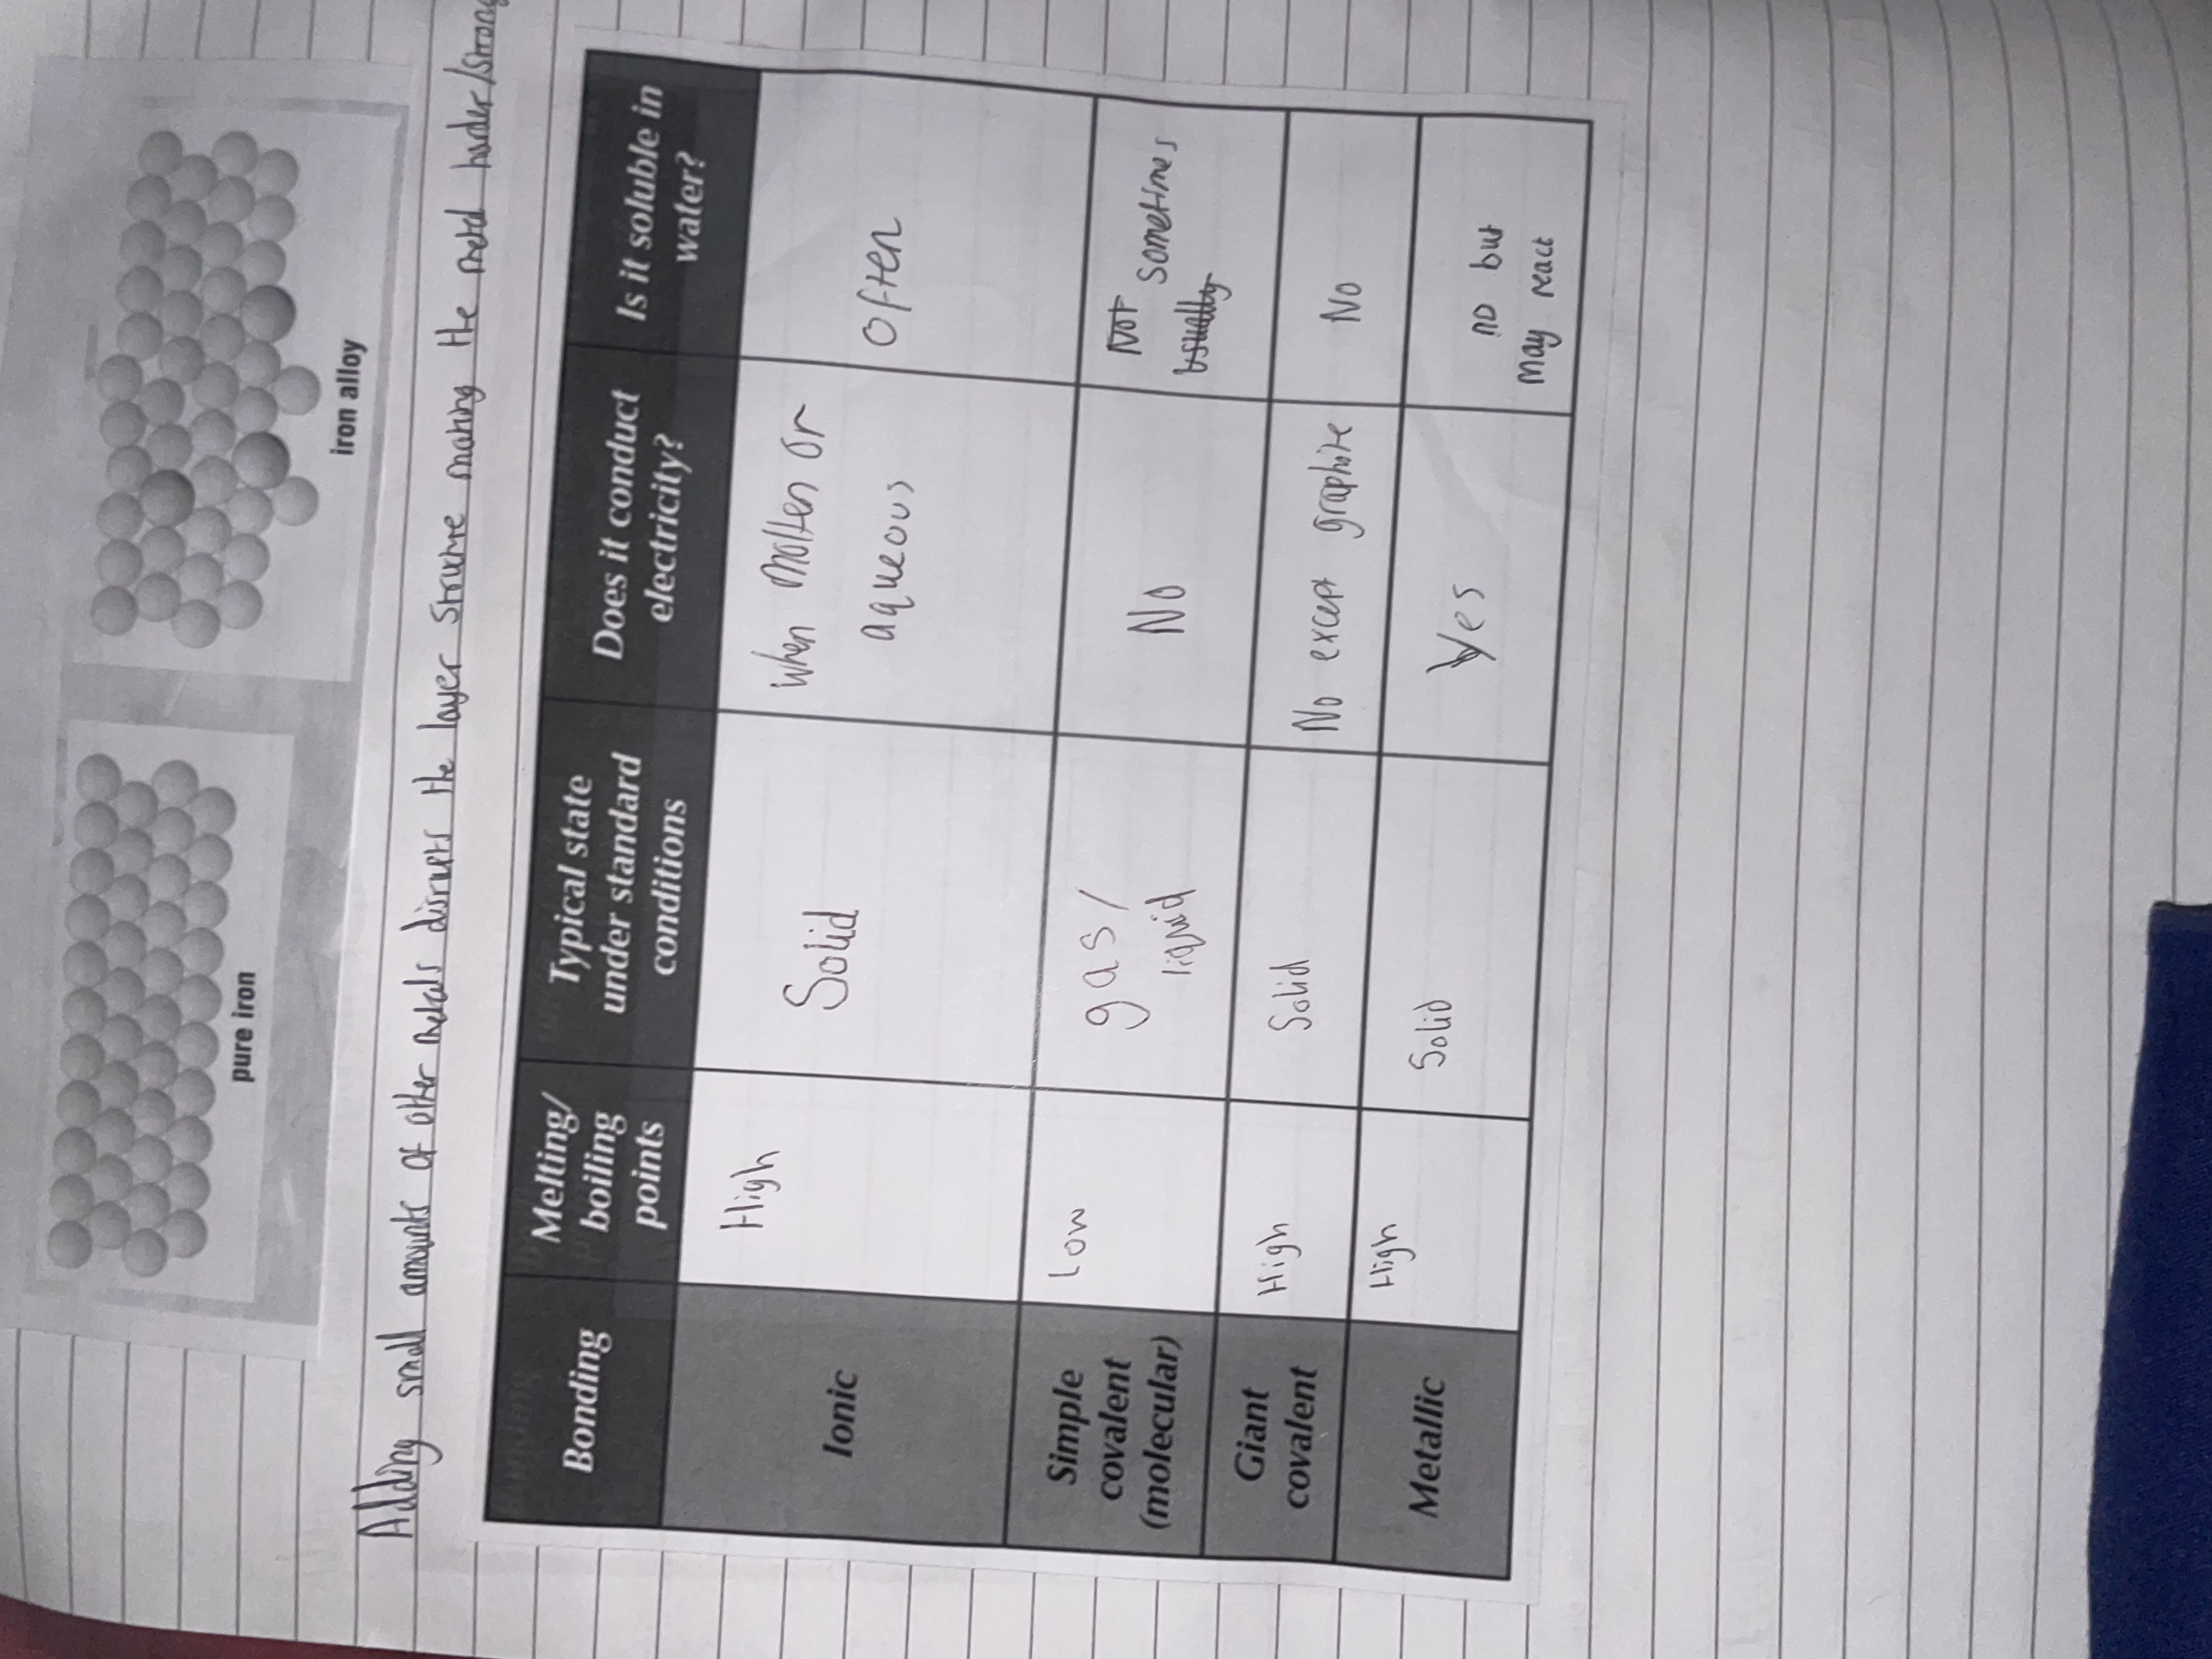 pure iron
iron alloy
Adding small amounts of other metals disrupts the layer structure making the metal harder/strong
Bonding
Melting/
boiling
points
Typical state
under standard
conditions
Does it conduct
electricity?
Is it soluble in
water?
Ionic
High
Solid
When molten or
aqueous
Often
Simple
covalent
(molecular)
Low
gas/
liquid
No
Not sometimes
usually
Giant
covalent
High
Solid
No except graphite
No
Metallic
High
Solid
Yes
no but
may react